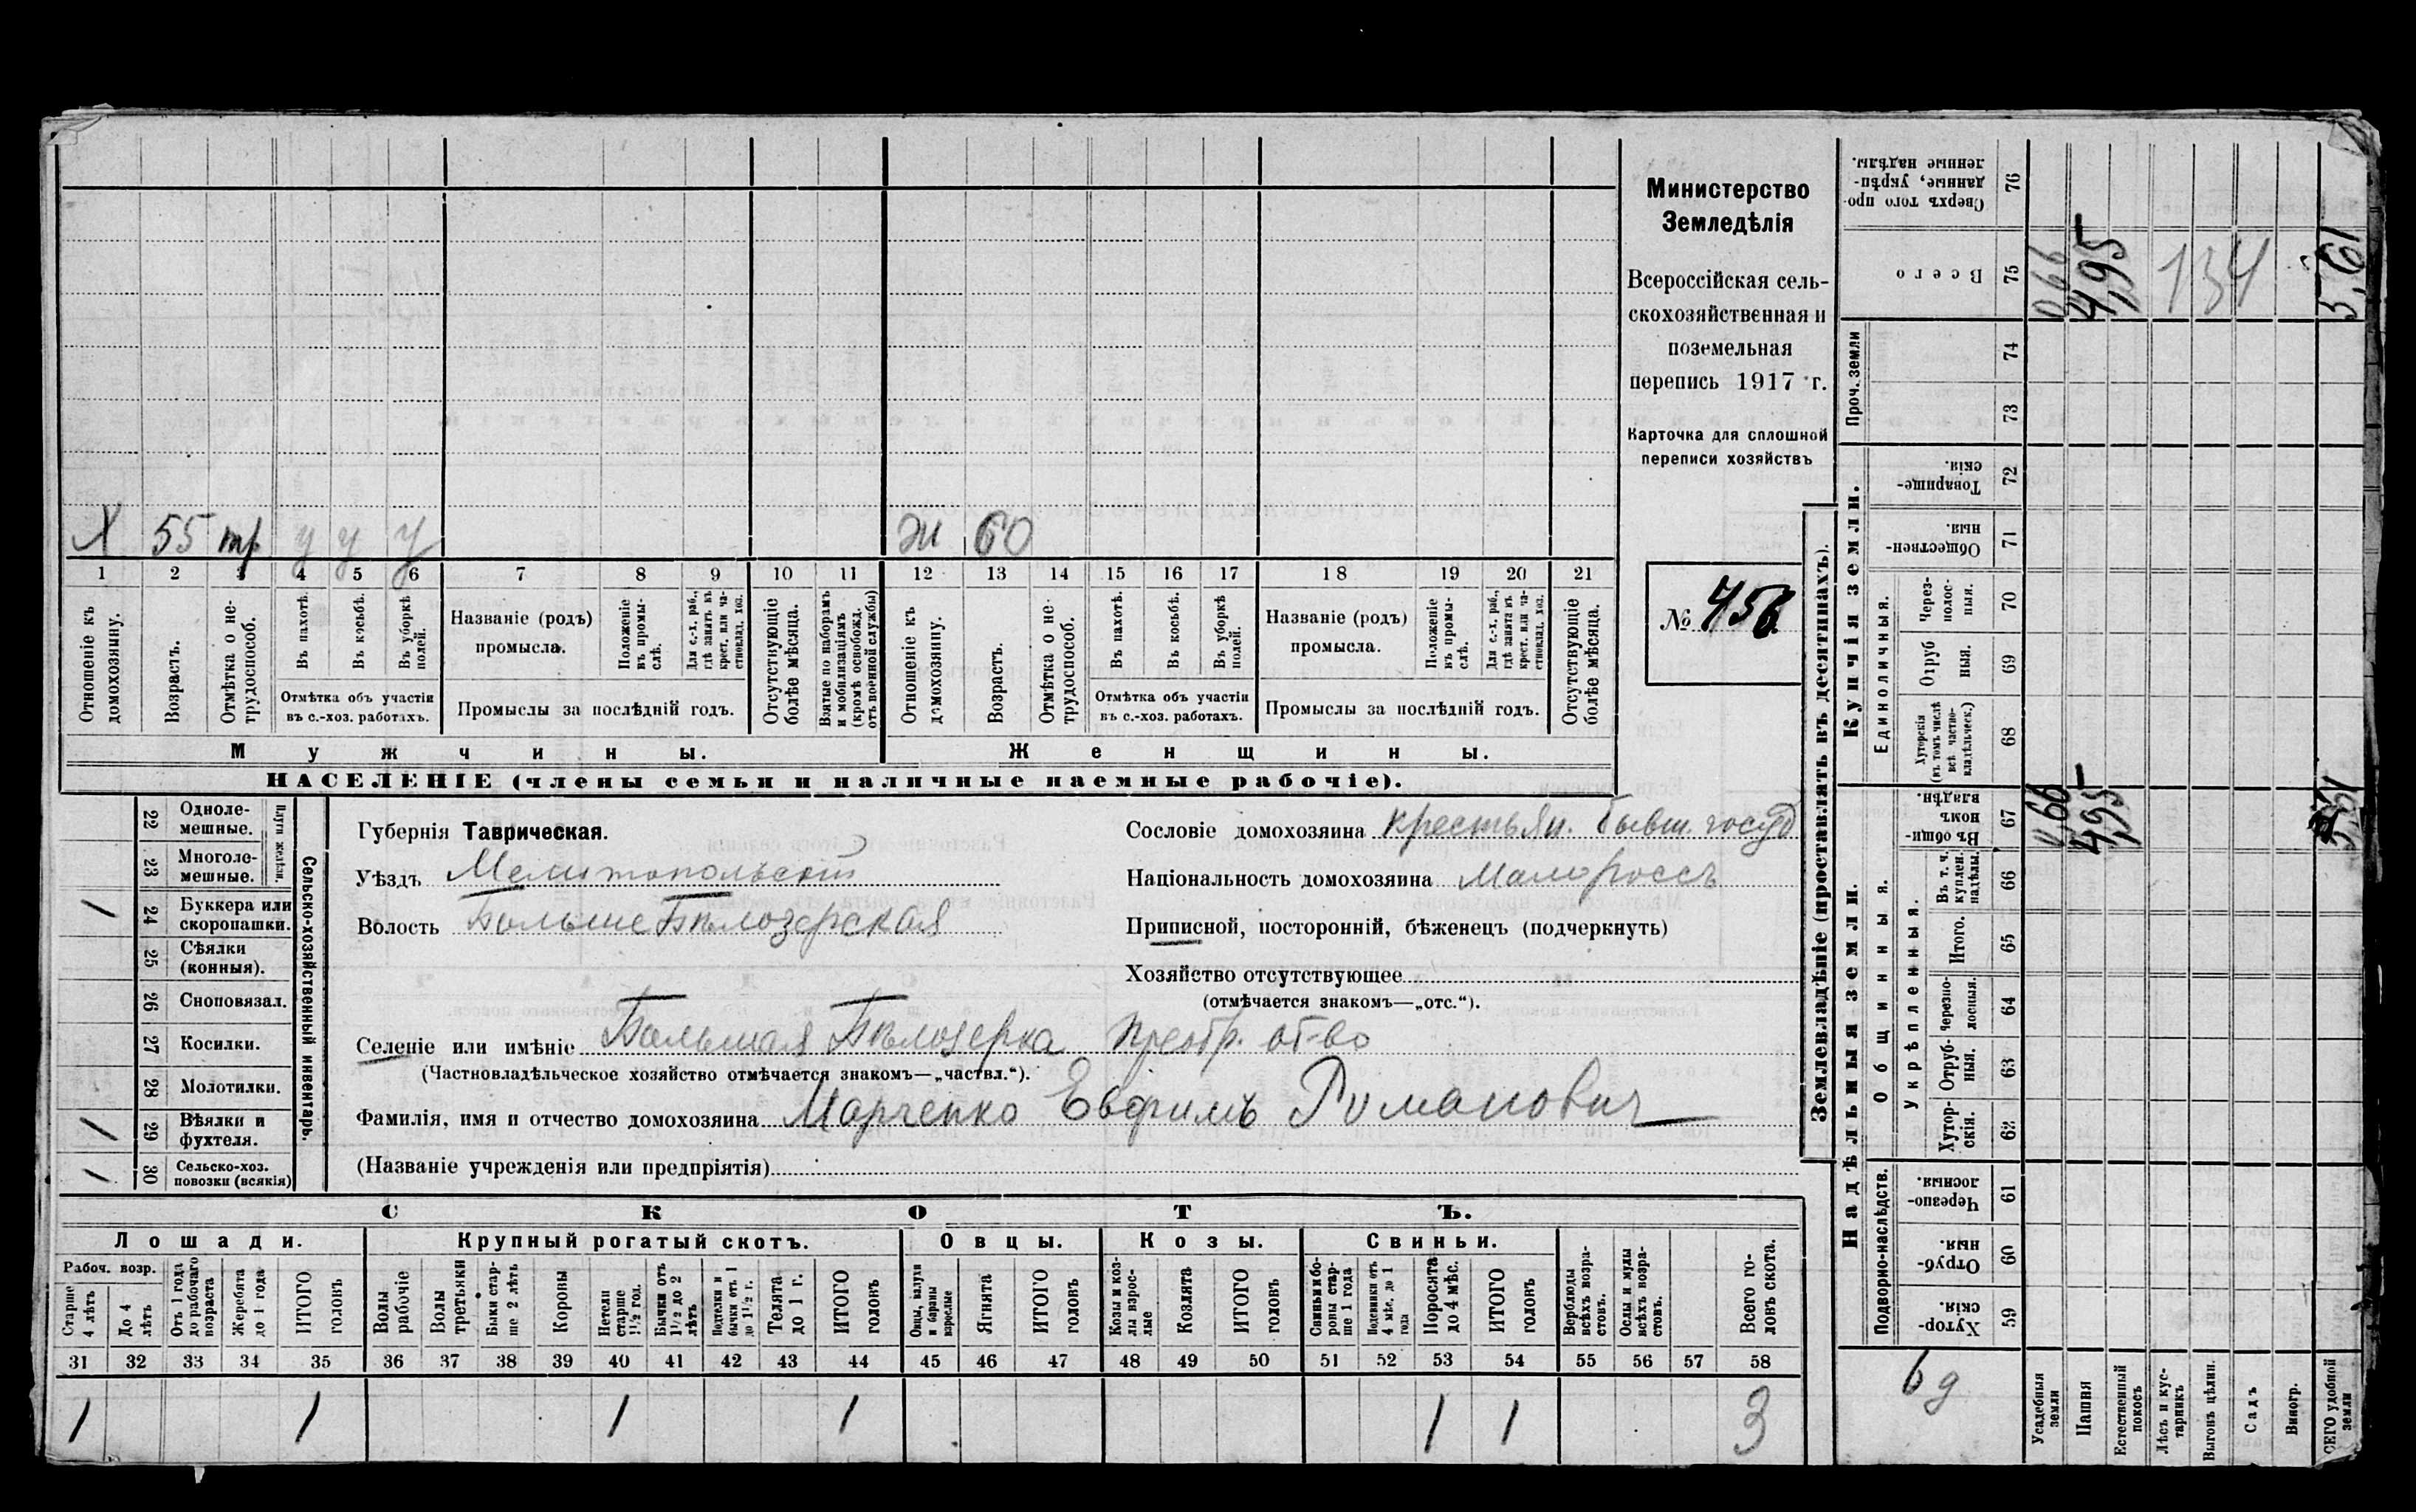 Министерство
Земледѣлія
Всероссійская сель-
скохозяйственная и
поземельная
перепись 1917 г.
Карточка для сплошной
переписи хозяйствъ
№ 456
Х 55 тр у у у ж 60
1 2 3 4 5 6 7 8 9 10 11 12 13 14 15 16 17 18 19 20 21
Отношеніе къ домохозяину.
Возрастъ.
Отмѣтка о не-трудоспособ.
Въ пахотѣ.
Въ косьбѣ.
Въ уборкѣ полей.
Отмѣтка объ участіи
въ с.-хоз. работахъ.
Названіе (родъ)
промысла.
Положеніе въ промы-слѣ.
Для с.-х. раб., гдѣ занятъ въ крест. или ча-стновлад. хоз.
Промыслы за послѣдній годъ.
Отсутствующіе болѣе мѣсяца.
Взятые по наборамъ и мобилизаціямъ (кромѣ освобожд. отъ военной службы)
Отношеніе къ домохозяину.
Возрастъ.
Отмѣтка о не-трудоспособ.
Въ пахотѣ.
Въ косьбѣ.
Въ уборкѣ полей.
Отмѣтка объ участіи
въ с.-хоз. работахъ.
Названіе (родъ)
промысла.
Положеніе въ промы-слѣ.
Для с.-х. раб., гдѣ занята въ крест. или ча-стновлад. хоз.
Промыслы за послѣдній годъ.
Отсутствующіе болѣе мѣсяца.
Мужчины. Женщины.
НАСЕЛЕНІЕ (члены семьи и наличные наемные рабочіе).
Сельско-хозяйственный инвентарь.
Плуги желѣзн.
22 Одноле-мешные.
23 Многоле-мешные.
/ 24 Буккера или скоропашки.
25 Сѣялки (конныя).
26 Сноповязал.
27 Косилки.
28 Молотилки.
/ 29 Вѣялки и фухтеля.
/ 30 Сельско-хоз. повозки (всякія)
Губернія Таврическая.
Уѣздъ Мелитопольскій
Волость Больше Бѣлозерская
Сословіе домохозяина крестьян. бывш. госуд
Національность домохозяина Малороссъ
Приписной, посторонній, бѣженецъ (подчеркнуть)
Хозяйство отсутствующее
(отмѣчается знакомъ—„отс.“).
Селеніе или имѣніе Большая Бѣлозерка
(Частновладѣльческое хозяйство отмѣчается знакомъ—„частвл.“).
Фамилія, имя и отчество домохозяина Марченко Евфимъ Романович
(Названіе учрежденія или предпріятія)
СКОТЪ.
Лошади. Крупный рогатый скотъ. Овцы. Козы. Свиньи.
Рабоч. возр.
Старше 4 лѣтъ
До 4 лѣтъ
Отъ 1 года до рабочаго возраста
Жеребята до 1 года
ИТОГО головъ
Волы рабочіе
Волы третьяки
Быки стар-ше 2 лѣтъ
Коровы
Нетели старше 1½ год.
Бычки отъ 1½ до 2 лѣтъ
Подтелки и бычки отъ 1 до 1½ г.
Телята до 1 г.
ИТОГО головъ
Овцы, валухи и бараны взрослые
Ягнята
ИТОГО головъ
Козы и коз-лы взрос-лые
Козлята
ИТОГО головъ
Свиньи и бо-ровы стар-ше 1 года
Подсвинки отъ 4 мѣс. до 1 года
Поросята до 4 мѣс.
ИТОГО головъ
Верблюды всѣхъ возра-стовъ.
Ослы и мулы всѣхъ возра-стовъ.
Всего го-ловъ скота.
31 32 33 34 35 36 37 38 39 40 41 42 43 44 45 46 47 48 49 50 51 52 53 54 55 56 57 58
1 1 1 1 1 1 3
Землевладѣніе (проставлять въ десятинахъ).
Надѣльныя земли. Купчія земли. Проч. земли
Подворно-наслѣдств.
Общинныя.
Укрѣпленныя.
Единоличныя.
Сверхъ того про-данные, укрѣп-ленные надѣлы. 76
Всего 75 0,66 4,95 134 5,61
74
73
Товарище-скія. 72
Обществен-ныя. 71
Через-полос-ныя. 70
Отруб-ныя. 69
Хуторскія (въ томъ числѣ всѣ частно-владѣльческ.) 68
Въ общи-нномъ владѣн. 67 0,66 4,95
Въ т. ч. куплен. надѣлы. 66
Итого. 65
Черезпо-лосныя. 64
Отруб-ныя. 63
Хутор-скія. 62
Черезпо-лосныя. 61
Отруб-ныя. 60
Хутор-скія. 59
Усадебныя земли
Пашня
Естественный покосъ
Лѣсъ и кус-тарникъ
Выгонъ цѣлин.
Садъ
Виногр.
ВСЕГО удобной земли